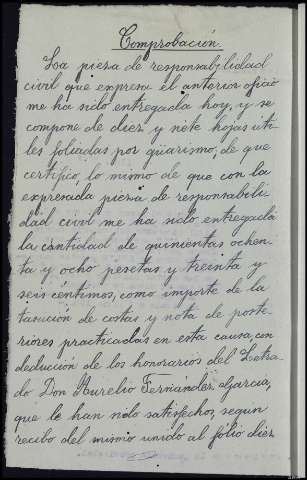 Comprobación.
La pieza de responsabilidad
civil que expresa el anterior oficio
me ha sido entregada hoy, y se
compone de diez y siete hojas úti-
les foliadas por guarismo, de que
certifico, lo mismo de que con la
expresada pieza de responsabili-
dad civil me ha sido entregada
la cantidad de quinientas ochen-
ta y ocho pesetas y treinta y
seis céntimos, como importe de la
tasación de costas y nota de poste-
riores practicadas en esta causa, con
deducción de los honorarios del Letra-
do Don Aurelio Fernandez Garcia,
que le han sido satisfechos, segun
recibo del mismo unido al folio diez